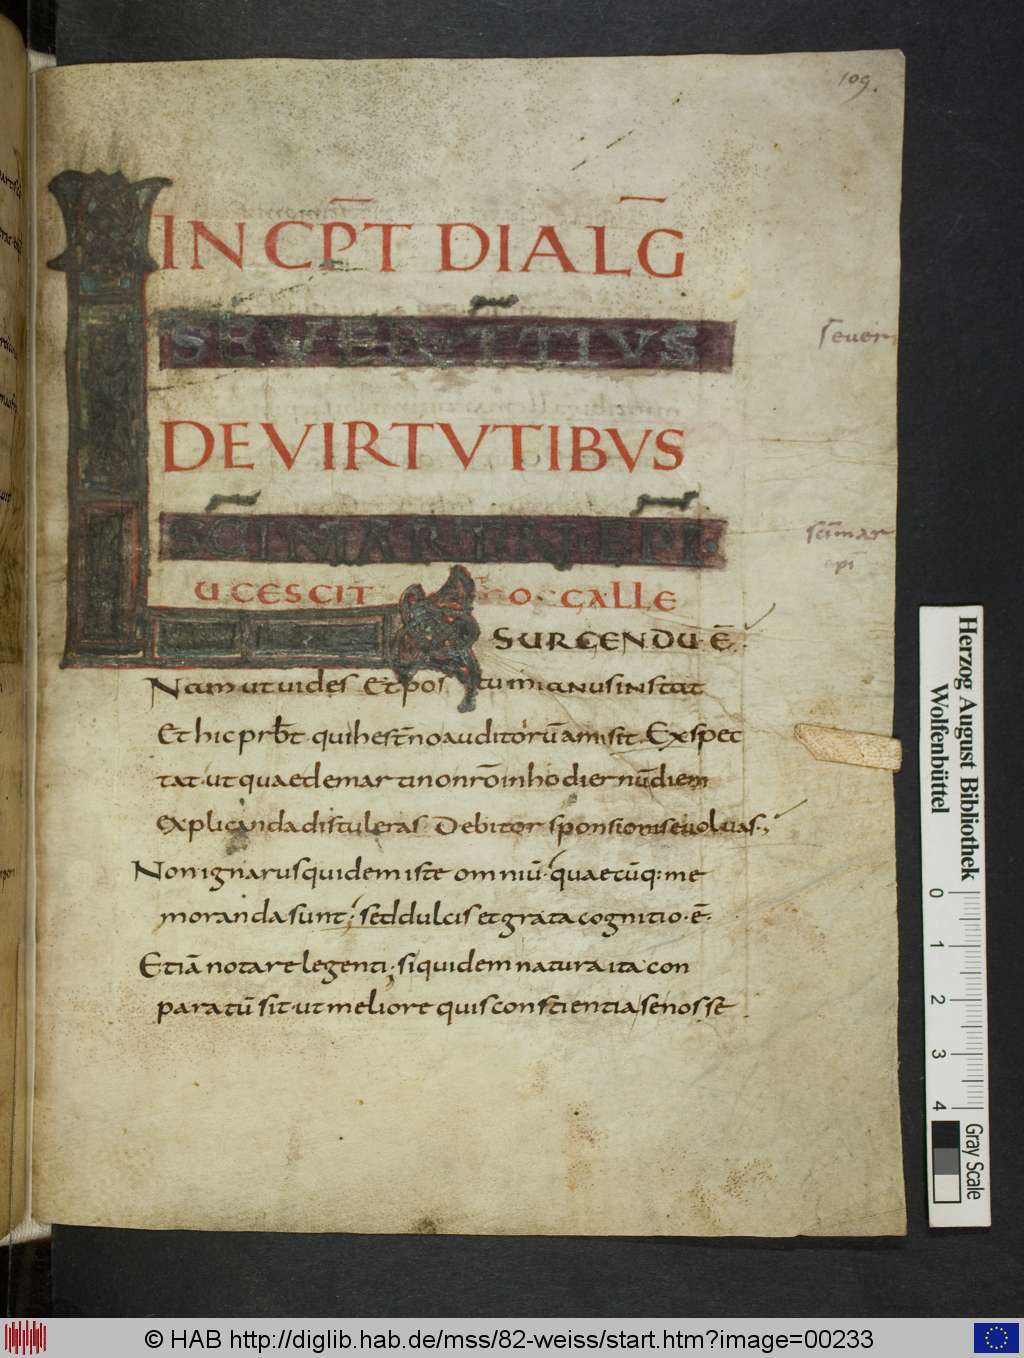 109.
INCP̄T DIAL̄G
SEVERI TIVS
seuer
DE VIRTVTIBVS
SCI MARTINI EPI·
sc̄i mar
epi
LUCESCIT O· GALLE
SURGENDŪ Ē·
Nam ut uides Et pos tumianus instat
Et hic prb̄t qui hestn̄o auditoriū amisit. Exspec
tat ut quae de martino nr̄o in hodiernū diem
explicanda distuleras Debitor sponsionis euoluas·,
Non ignarus quidem iste omniū· quaecūq: me
moranda sunt; sed dulcis et grata cognitio· ē·
Etiā nota relegenti; siquidem natura ita con
paratū sit· ut meliore quis conscientia, se nosse
Herzog August Bibliothek
Wolfenbüttel
0 1 2 3 4
Gray Scale
© HAB http://diglib.hab.de/mss/82-weiss/start.htm?image=00233